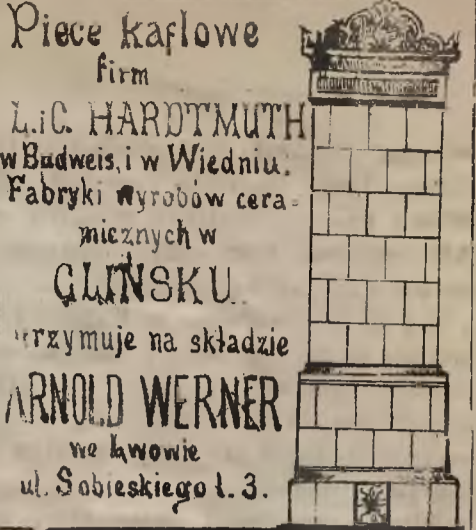 Piece kaflowe
firm
L. i C. HARDTMUTH
w Budweis, i w Wiedniu.
Fabryki wyrobów cera=
micznych w
GLIŃSKU
trzymuje na składzie
ARNOLD WERNER
we Lwowie
ul. Sobieskiego l. 3.